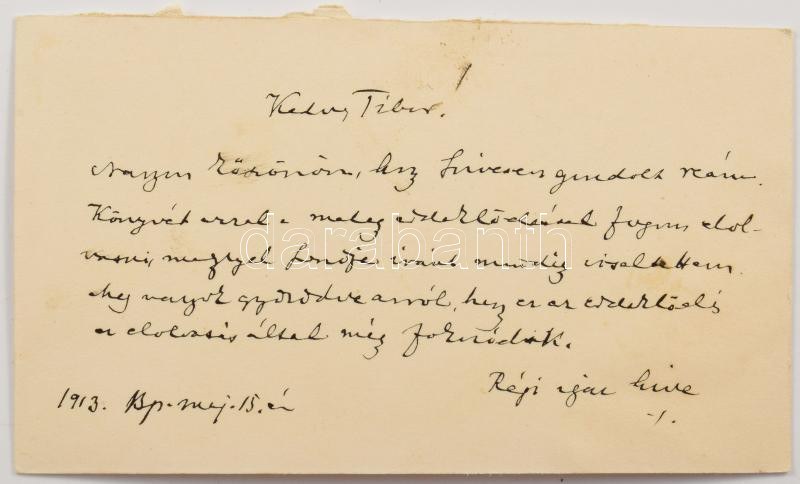 Kedves Tibor!
Nagyon köszönöm, hogy szívesen gondolt reám.
Könyvét azzal a meleg érdeklődéssel fogom elol-
vasni, mellyel szerzője iránt mindig viseltettem.
Meg vagyok győződve arról, hogy ez az érdeklődés
az elolvasás által még fokozódik.
Régi igaz híve
1913. Bp. maj. 15. én
darabanth